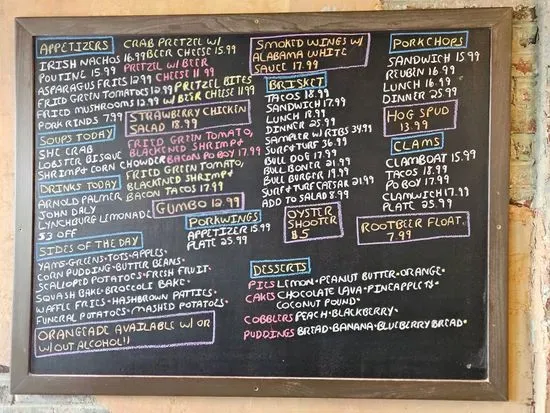 APPETIZERS
IRISH NACHOS 16.99
POUTINE 15.99
ASPARAGUS FRIES 12.99
FRIED GREEN TOMATOES 12.99
FRIED MUSHROOMS 12.99
PORK RINDS 7.99
CRAB PRETZEL W/
BEER CHEESE 15.99
PRETZEL W/ BEER
CHEESE 11.99
PRETZEL BITES
W/ BEER CHEESE 11.99
STRAWBERRY CHICKEN
SALAD 18.99
SOUPS TODAY
SHE CRAB
LOBSTER BISQUE
SHRIMP & CORN CHOWDER
FRIED GREEN TOMATO,
BLACKENED SHRIMP &
BACON PO BOY 17.99
FRIED GREEN TOMATO,
BLACKENED SHRIMP &
BACON TACOS 17.99
DRINKS TODAY
ARNOLD PALMER
JOHN DALY
LYNCHBURG LEMONADE
$3 OFF
GUMBO 12.99
PORKWINGS
APPETIZER 15.99
PLATE 25.99
SIDES OF THE DAY
YAMS · GREENS · TOTS · APPLES ·
CORN PUDDING · BUTTER BEANS ·
SCALLOPED POTATOES · FRESH FRUIT ·
SQUASH BAKE · BROCCOLI BAKE ·
WAFFLE FRIES · HASHBROWN PATTIES ·
FUNERAL POTATOES · MASHED POTATOES ·
ORANGEADE AVAILABLE W/ OR
W/OUT ALCOHOL!!
SMOKED WINGS W/
ALABAMA WHITE
SAUCE 17.99
BRISKET
TACOS 18.99
SANDWICH 17.99
LUNCH 18.99
DINNER 25.99
SAMPLER W/ RIBS 34.99
SURF & TURF 36.99
BULL DOG 17.99
BULL BONER 21.99
BULL BURGER 19.99
SURF & TURF CAESAR 21.99
ADD TO SALAD 8.99
OYSTER
SHOOTER
$5
PORKCHOPS
SANDWICH 15.99
REUBEN 16.99
LUNCH 16.99
DINNER 25.99
HOG SPUD
13.99
CLAMS
CLAMBOAT 15.99
TACOS 18.99
PO BOY 17.99
CLAMWICH 17.99
PLATE 25.99
ROOTBEER FLOAT
7.99
DESSERTS
PIES LEMON · PEANUT BUTTER · ORANGE ·
CAKES CHOCOLATE LAVA · PINEAPPLE ·
COCONUT POUND ·
COBBLERS PEACH · BLACKBERRY ·
PUDDINGS BREAD · BANANA · BLUEBERRY BREAD ·